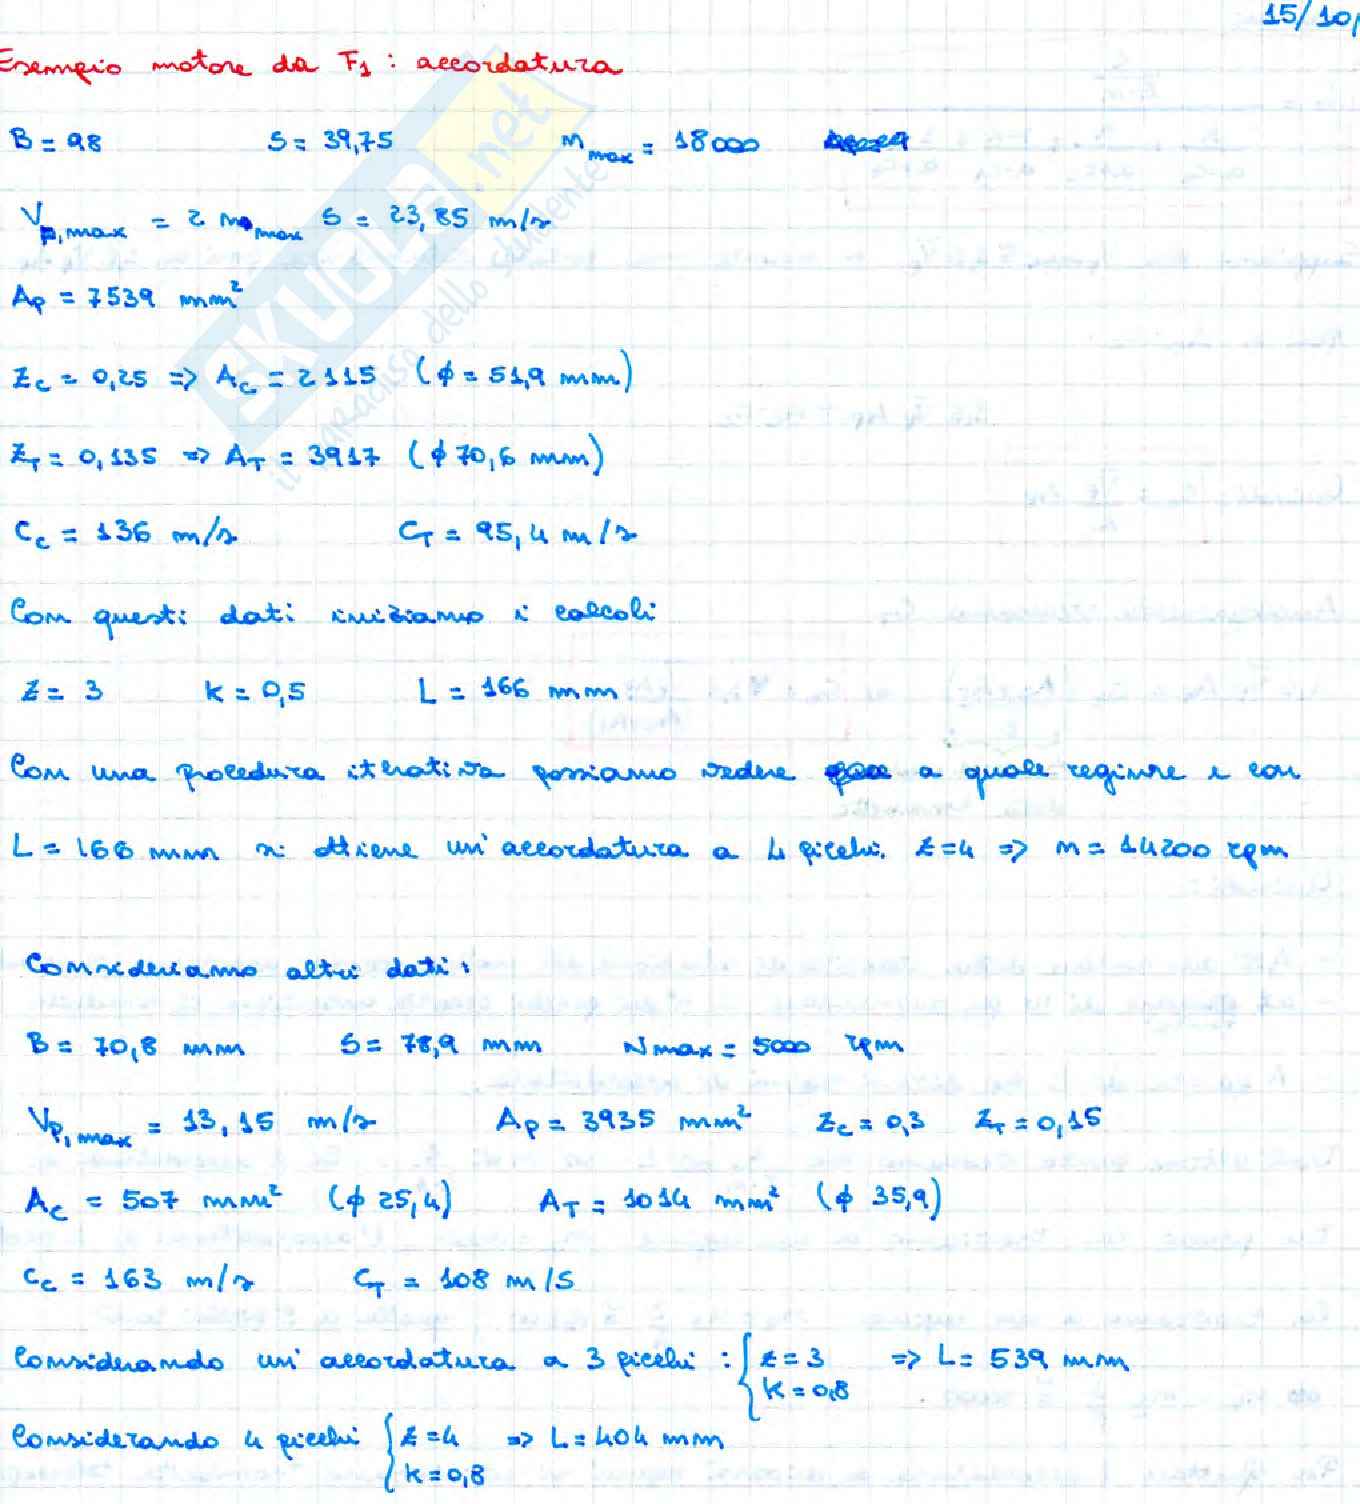 15/10/
Esempio motore da F1 : accordatura
B = 98 S = 39,75 n max = 18000
Vp,max = 2 n max S = 23,85 m/s
Ap = 7539 mm²
Zc = 0,25 => Ac = 2115 (ϕ = 51,9 mm)
ZT = 0,135 => AT = 3917 (ϕ 70,6 mm)
Cc = 136 m/s CT = 95,4 m/s
Con questi dati iniziamo i calcoli
Z = 3 K = 0,5 L = 166 mm
Con una procedura iterativa possiamo vedere a quale regime e con
L = 166 mm si ottiene un'accordatura a 4 picchi. Z=4 => n = 14200 rpm
Consideriamo altri dati:
B = 70,8 mm S = 78,9 mm Nmax = 5000 rpm
Vp,max = 13,15 m/s Ap = 3935 mm² Zc = 0,3 ZT = 0,15
Ac = 507 mm² (ϕ 25,4) AT = 1014 mm² (ϕ 35,9)
Cc = 163 m/s CT = 108 m/s
Considerando un'accordatura a 3 picchi : { Z = 3 => L = 539 mm
K = 0,8
Considerando 4 picchi { Z = 4 => L = 404 mm
K = 0,8
SKUOLA.net
il paradiso dello studente